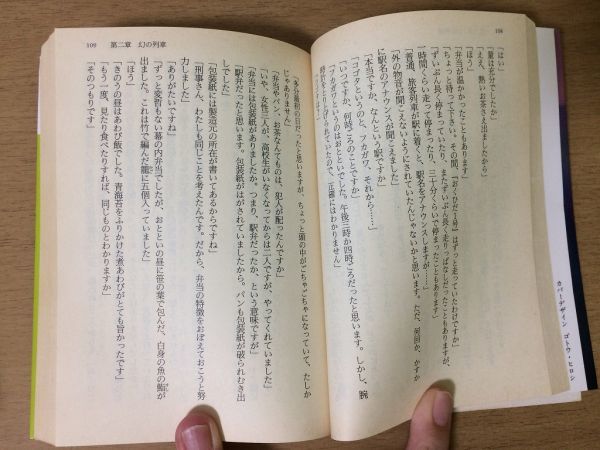 108
「はい」
「量は充分でしたか」
「ええ、熱いお茶さえ出ましたから」
「ほう」
「弁当が温かかったこともあります」
「ちょっと待って下さい。その間、『おくひだ1号』はずっと走っていたわけですか」
「ずいぶん長く停まっていたり、またずいぶん長く走りっぱなしだったこともありますが、
一時間くらい走って停まったり、三十分くらいで停まったこともあります」
「普通、旅客列車が駅に着くと、駅名をアナウンスしますが……」
「外の物音が聞こえないようにされていたんじゃないかと思います。ただ、何回か、かすか
に駅名のアナウンスが聞こえました」
「本当ですか。なんという駅ですか」
「ゴゴタというのと、フカガワ、それから……」
「いつですか、何時ごろのことですか」
「フカガワというのはおとといでした。午後三時か四時ごろだったと思います。しかし、腕
で、正確にはわかりません」
カバーデザイン ゴトウ・ヒロシ
109 第二章 幻の列車
「多分最初の日だったと思いますが、ちょっと頭の中がごちゃごちゃになっていて、たしか
じゃありません」
「弁当やパン、お茶なんてものは、犯人が配ったんですか」
「いや、女性三人が、高校生がいなくなってからは二人ですが、やってくれていました」
「弁当には包装紙がありましたか。つまり、駅弁だったか、という意味ですが」
「駅弁だったと思います。包装紙がはがされていましたから。パンも包装紙が破られむき出
しでした」
「包装紙には製造元の所在が書いてあるからですね」
「刑事さん、わたしも同じことを考えたんです。だから、弁当の特徴をおぼえておこうと努
力しました」
「ありがたいですね」
「ずっと変哲もない幕の内弁当でしたが、おとといの昼に笹の葉で包んだ、白身の魚の鮨が
出ました。これは竹で編んだ籠に五個入っていました」
「ほう」
「きのうの昼はあわび飯でした。青海苔をふりかけた煮あわびがとても旨かったです」
「もう一度、見たり食べたりすれば、同じものとわかりますか」
「そのつもりです」